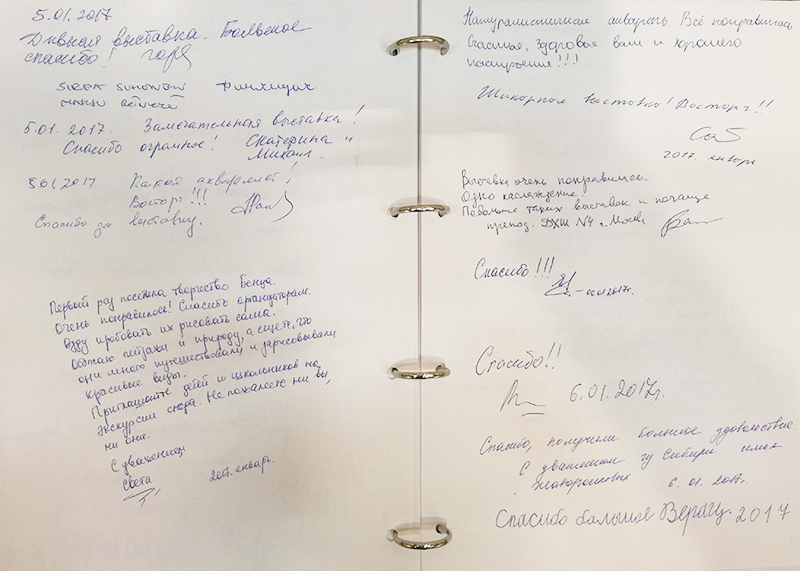 5.01.2017
Дивная выставка. Большое
спасибо!
5.01.2017. Замечательная выставка!
Спасибо огромное! Екатерина и
Михаил.
2017 Какой акварелист!
Восторг!!!
Спасибо за выставку.
Первый раз посетила творчество Бенца.
Очень понравилось! Спасибо организаторам.
Буду пробовать их рисовать сама.
Обожаю пейзажи и природу, а ещё то, что
они много путешествовали и зарисовывали
красивые виды.
Приглашайте детей и школьников на
экскурсии сюда. Не пожалеете ни вы,
ни они.
С уважением
Света 2017. январь.
Натуралистичная акварель. Всё понравилось
Счастья, здоровья вам и хорошего
настроения!!!
Шикарная выставка! Восторг!!
2017. январь
Выставка очень понравилась.
Одно наслаждение!
Побольше таких выставок и почаще
препод. ДХШ №4 г. Москва
Спасибо!!!
Спасибо!!
6.01.2017г.
Спасибо, получили большое удовольствие.
С уважением из Сибири семья
6.01.2017.
Спасибо большое 2017